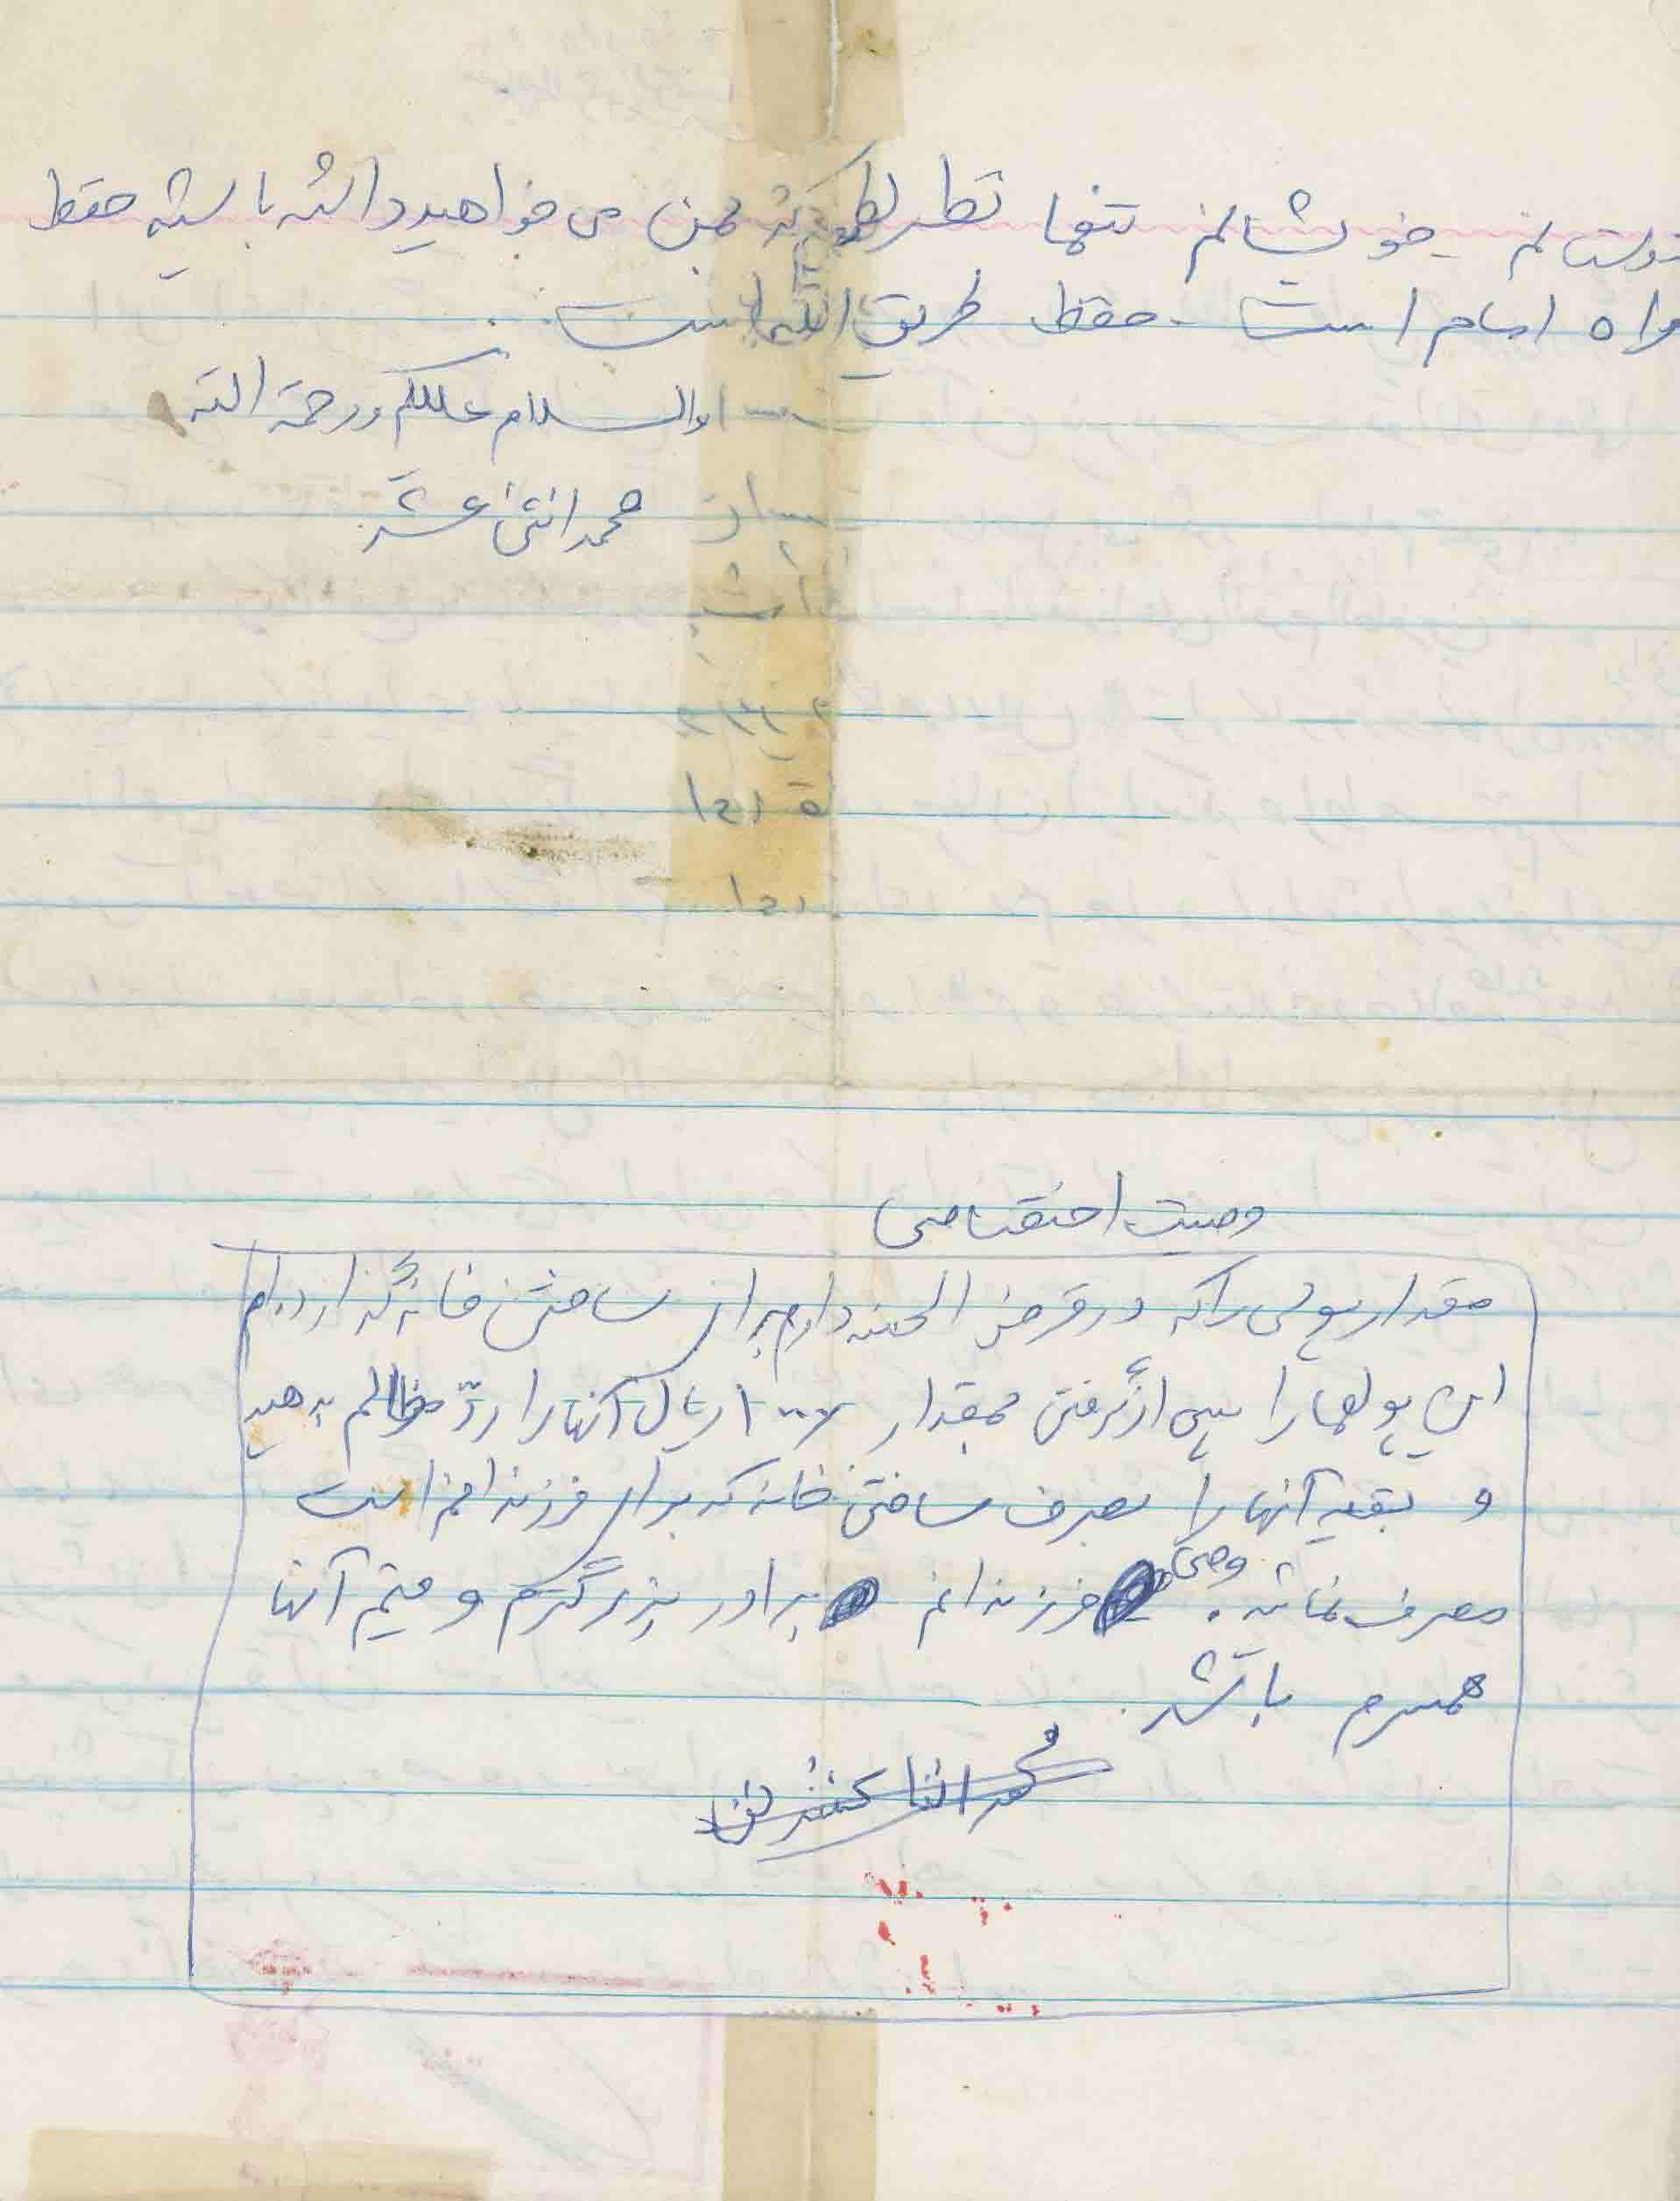 دوستانم خویشانم تنها نظر لطفی که بمن می خواهید داشته باشید حفظ
راه امام است حفظ طریق الله است.
والسلام علیکم ورحمة الله
محمد اثنی عشر
وصیت اختصاصی
مقدار پولی را که در قرض الحسنه دارم برای ساختن خانه گذارده ام
این پولها را پس از گرفتن بمقدار ریال آنها را ردّ مظالم بدهید
و بقیه آنها را بصرف ساختن خانه که برای فرزندانم است
مصرف نمائید. وصی فرزندانم برادر بزرگترم و قیم آنها
همسرم باشد.
محمد اثنا عشر